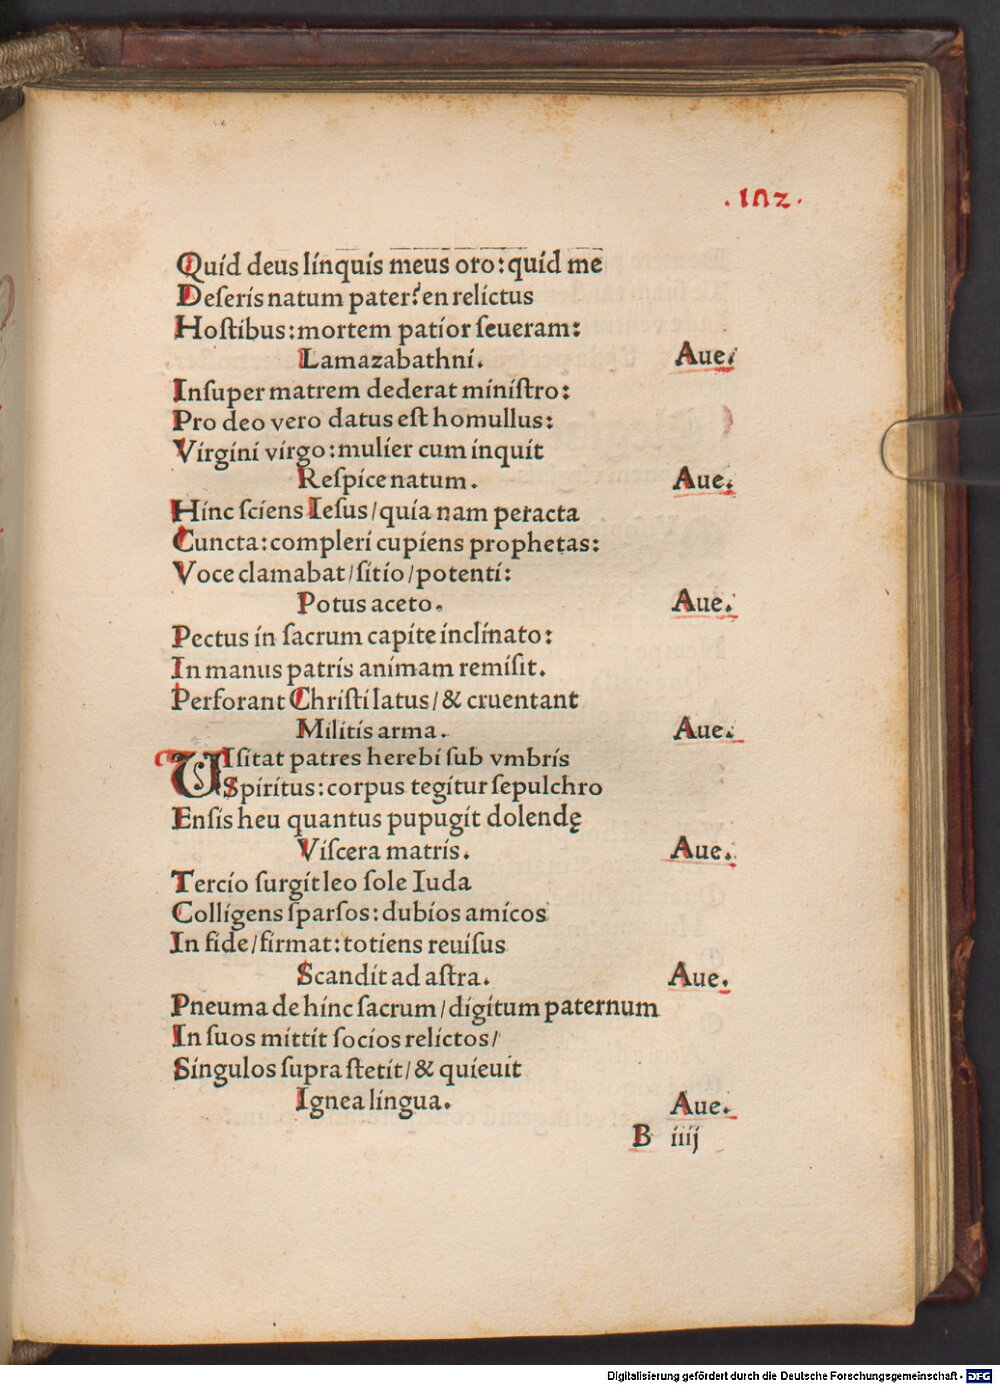 .102.
Quid deus linquis meus oro:quid me
Deseris natum pater?en relictus
Hoſtibus:mortem patior ſeueram:
Lamazabathni. Aue.
Inſuper matrem dederat miniſtro:
Pro deo vero datus eſt homullus:
Virgini virgo:mulier cum inquit
Reſpice natum. Aue.
Hinc ſciens Ieſus/quia nam peracta
Cuncta:compleri cupiens prophetas:
Voce clamabat/ſitio/potenti:
Potus aceto. Aue.
Pectus in ſacrum capite inclinato:
In manus patris animam remiſit.
Perforant Chriſti latus/& cruentant
Militis arma. Aue.
VIſitat patres herebi ſub vmbris
Spiritus:corpus tegitur ſepulchro
Enſis heu quantus pupugit dolendę
Viſcera matris. Aue.
Tercio ſurgit leo ſole Iuda
Colligens ſparſos:dubios amicos
In fide/firmat:totiens reuiſus
Scandit ad aſtra. Aue.
Pneuma de hinc ſacrum/digitum paternum
In ſuos mittit ſocios relictos/
Singulos ſupra ſtetit/& quieuit
Ignea lingua. Aue.
B iiij
Digitalisierung gefördert durch die Deutsche Forschungsgemeinschaft - DFG